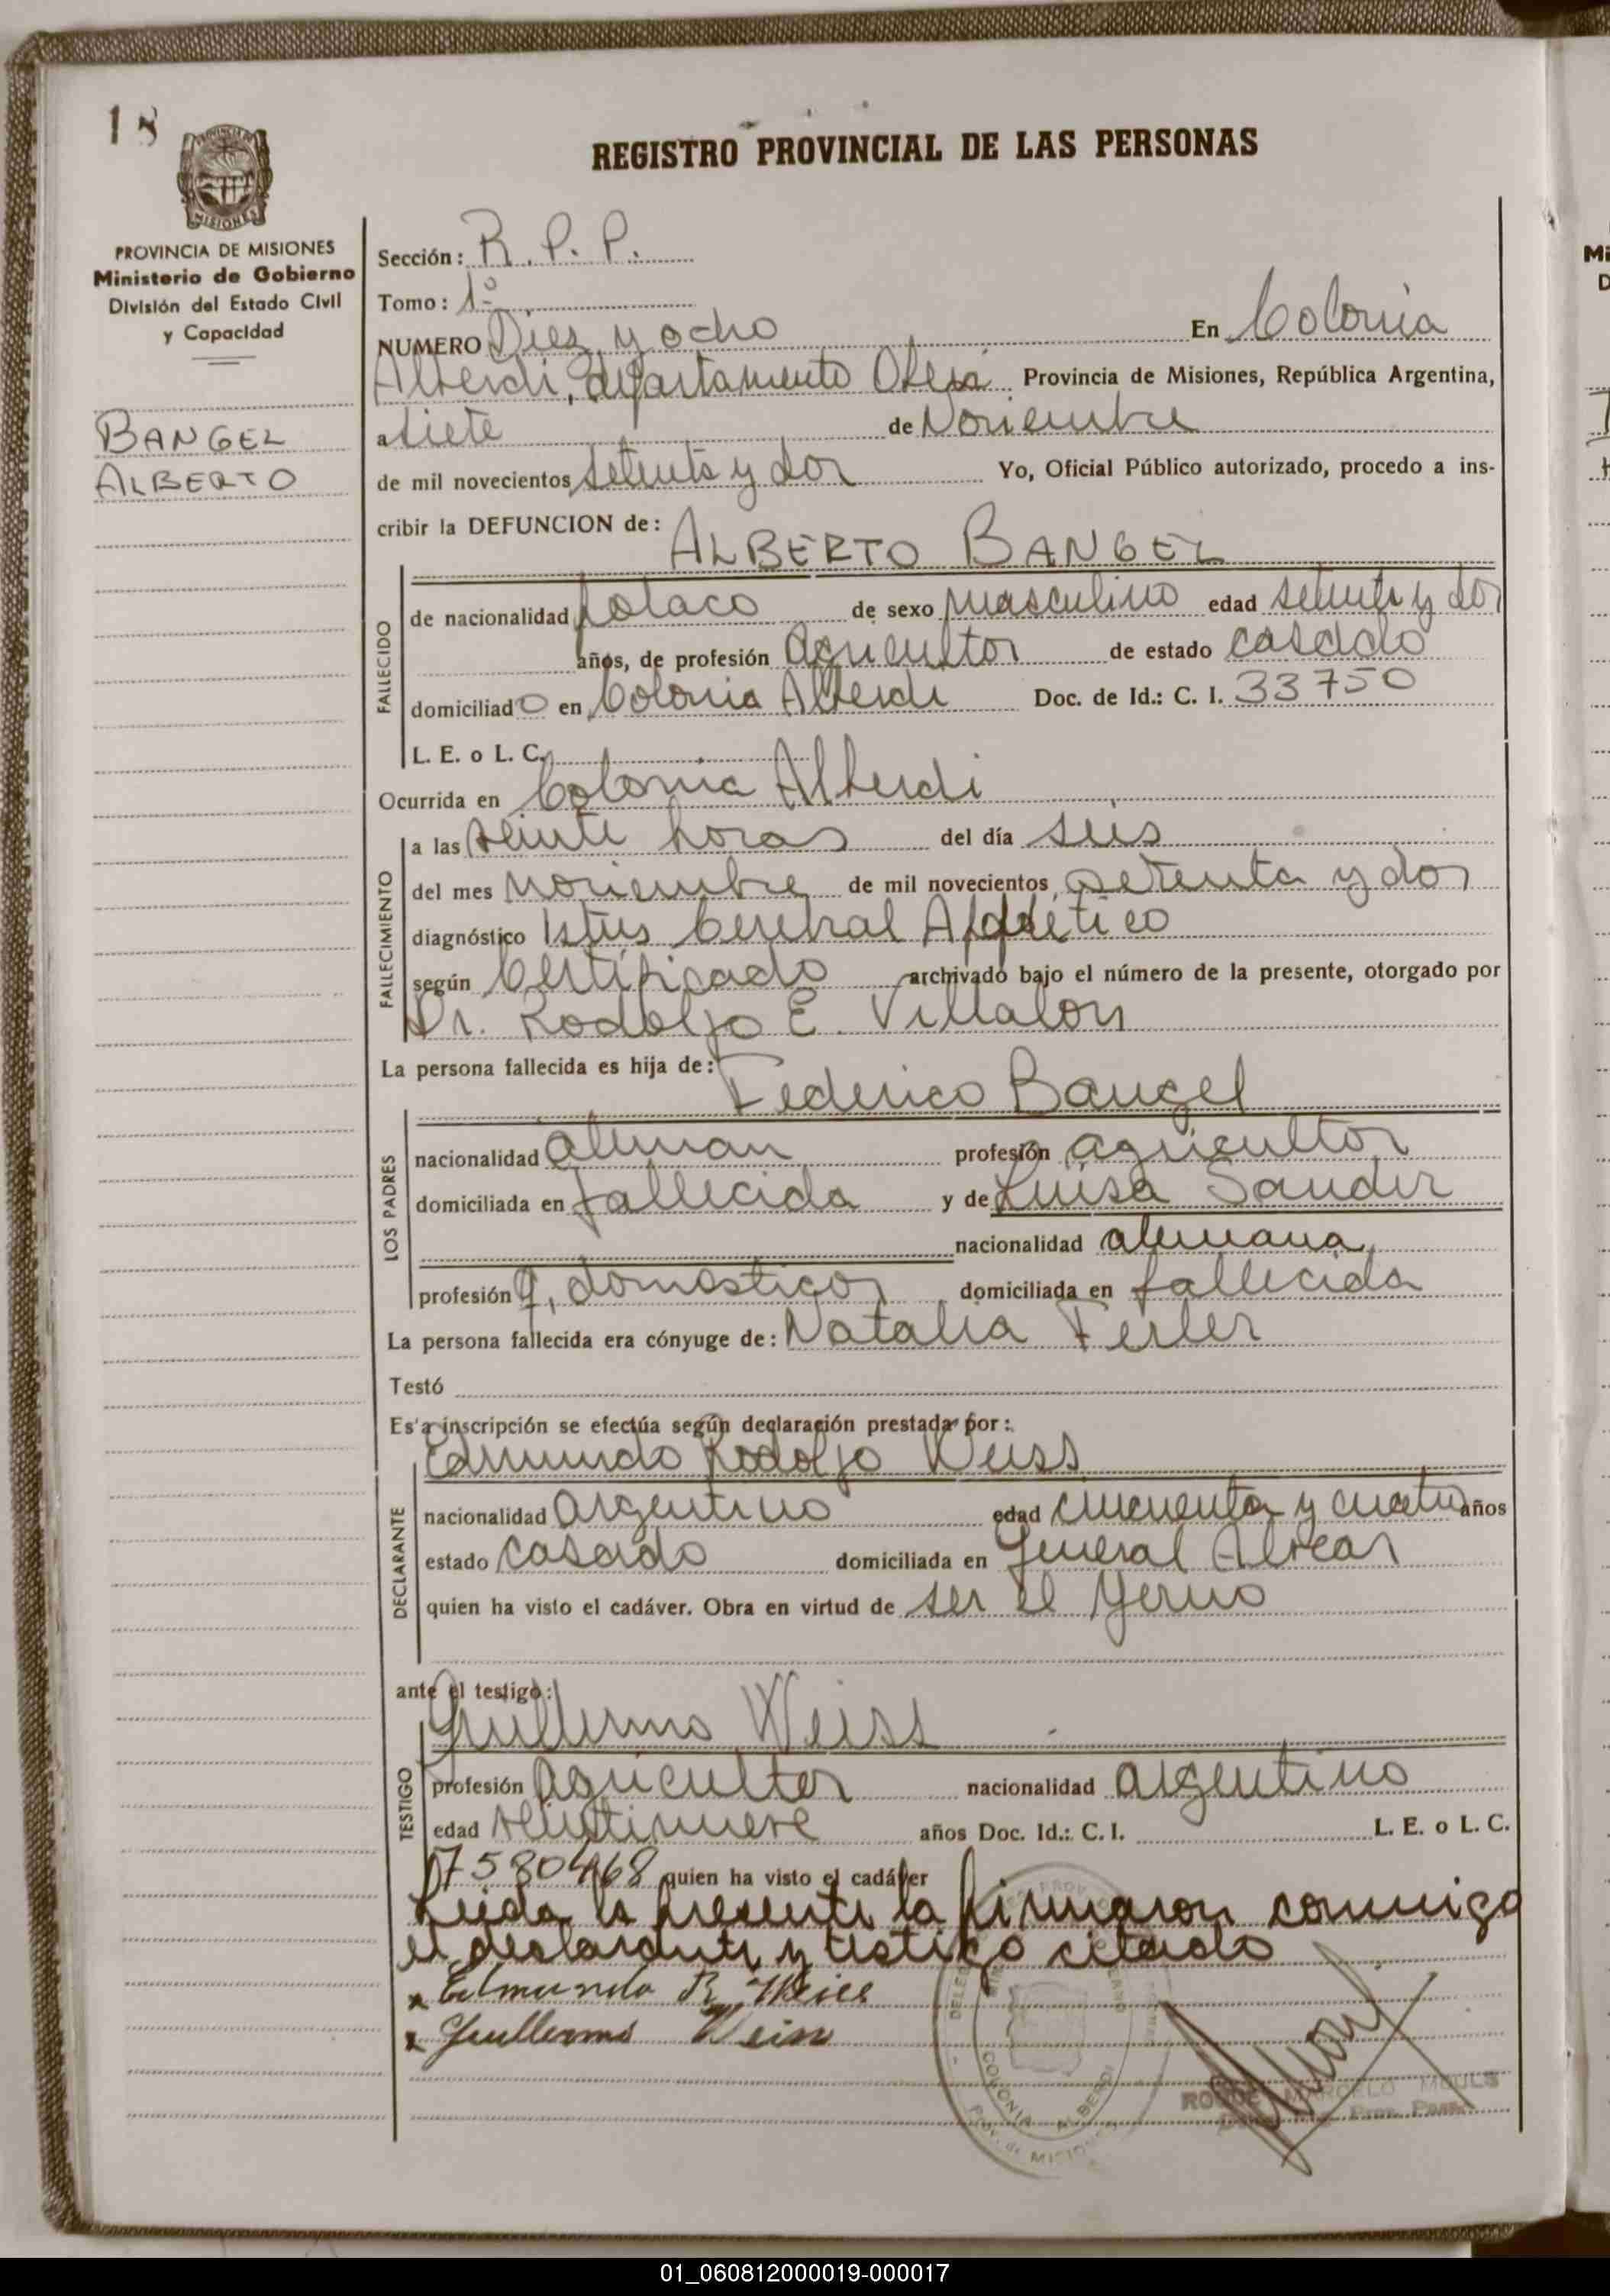 18
REGISTRO PROVINCIAL DE LAS PERSONAS
PROVINCIA DE MISIONES
Ministerio de Gobierno
División del Estado Civil
y Capacidad
BANGEL
ALBERTO
Sección: R. P. P.
Tomo: 1º
NUMERO Diez y ocho En Colonia
Alberdi, departamento Oberá Provincia de Misiones, República Argentina,
a siete de Noviembre
de mil novecientos setenta y dos Yo, Oficial Público autorizado, procedo a ins-
cribir la DEFUNCION de: ALBERTO BANGEL
FALLECIDO
de nacionalidad polaco de sexo masculino edad setenta y dos
años, de profesión agricultor de estado casado
domiciliado en Colonia Alberdi Doc. de Id.: C. I. 33750
L. E. o L. C.
Ocurrida en Colonia Alberdi
FALLECIMIENTO
a las veinte horas del día seis
del mes noviembre de mil novecientos setenta y dos
diagnóstico Cerebral
según Certificado archivado bajo el número de la presente, otorgado por
Dr. Rodolfo E. Villalon
La persona fallecida es hija de: Federico Bangel
LOS PADRES
nacionalidad aleman profesión agricultor
domiciliada en fallecida y de Luisa Sander
nacionalidad alemana
profesión q. domesticos domiciliada en fallecida
La persona fallecida era cónyuge de: Natalia
Testó
Es'a inscripción se efectúa según declaración prestada por:
Edmundo Rodolfo Weiss
DECLARANTE
nacionalidad argentino edad cincuenta y cuatro años
estado casado domiciliada en General Alvear
quien ha visto el cadáver. Obra en virtud de ser el yerno
ante el testigo:
Guillermo Weiss
TESTIGO
profesión agricultor nacionalidad argentino
edad veintinueve años Doc. Id.: C. I. L. E. o L. C.
7580468 quien ha visto el cadáver
Leida la presente la firmaron conmigo
el declarante y testigo citado
x Edmundo R. Weiss
x Guillermo Weiss
COLONIA ALBERDI
MISIONES
MARCELO
01_060812000019-000017